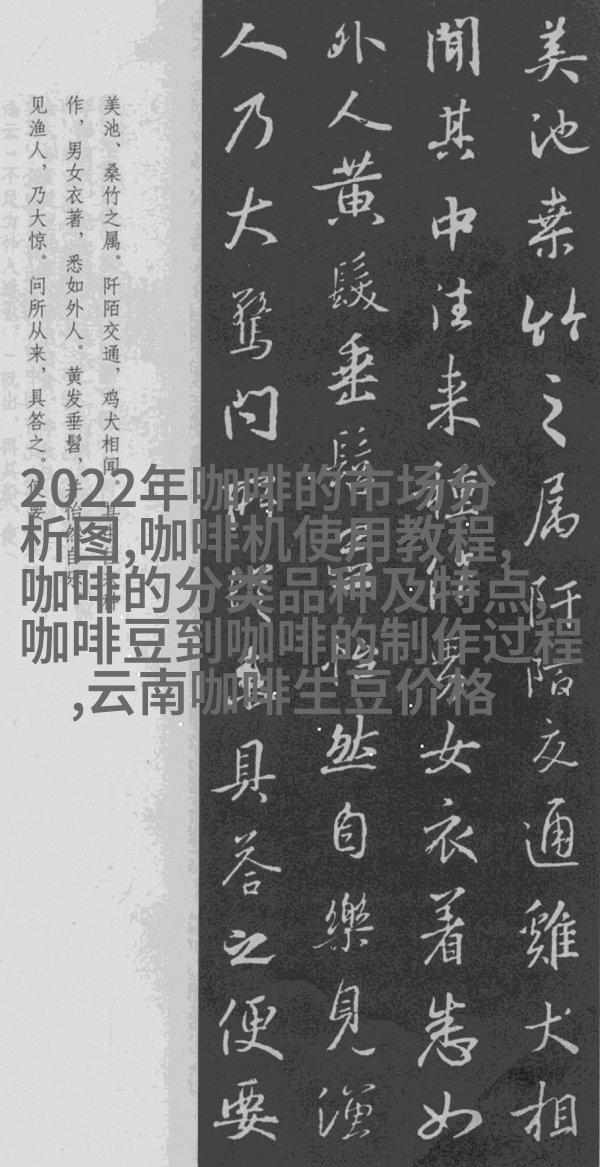 2022年咖啡的市场分
析图,咖啡机使用教程,
咖啡的分类品种及特点,
咖啡豆到咖啡的制作过程
,云南咖啡生豆价格
美池桒竹之属阡陌交通雞犬相
聞其中往来種作男女衣着悉如
外人黄髮垂髫並怡然自樂見漁
人乃大驚問所從来具答之便要
美池、桑竹之属。阡陌交通，鸡犬相闻。其中往来种
作，男女衣著，悉如外人。黄发垂髫，并怡然自乐。
见渔人，乃大惊。问所从来，具答之。便要